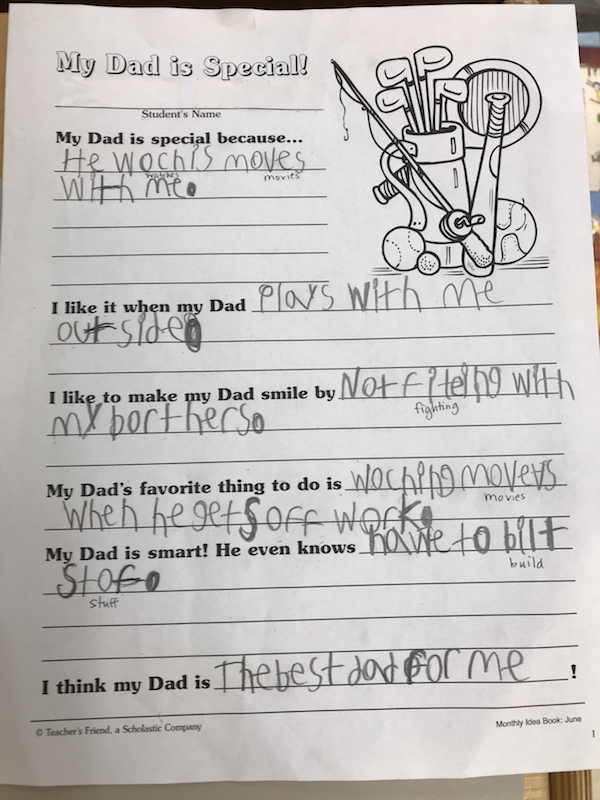 My Dad is Special!
Student's Name
My Dad is special because...
He wochis moves
watches movies
with me.
I like it when my Dad plays with me
outside.
I like to make my Dad smile by Not fiteing with
fighting
my borthers.
My Dad's favorite thing to do is woching movevs
movies
when he gets off work.
My Dad is smart! He even knows hawe to bilt
build
stof.
stuff
I think my Dad is The best dad for me !
© Teacher's Friend, a Scholastic Company Monthly Idea Book: June
1